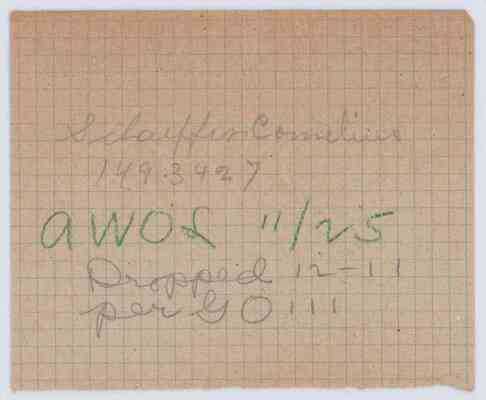 Schaeffer Cornelius
1493427
AWOL 11/25
Dropped 12-11
per GO 111